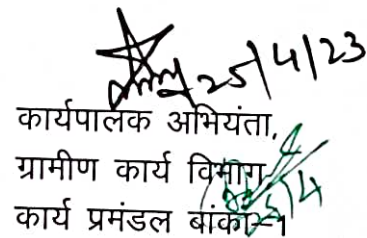 25/4/23
कार्यपालक अभियंता,
ग्रामीण कार्य विभाग,
कार्य प्रमंडल बांका-1
25/4